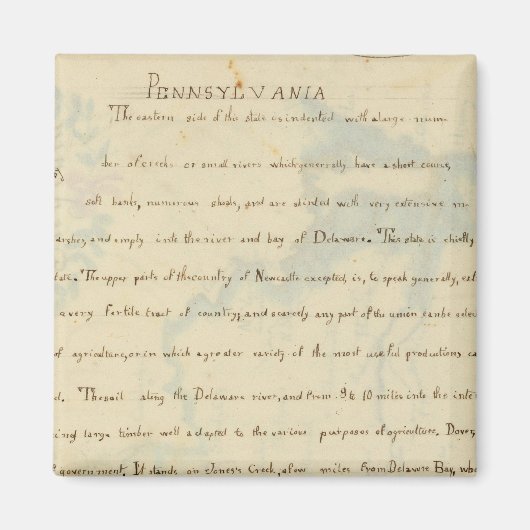 PENNSYLVANIA
The eastern side of this state is indented with a large num-
ber of creeks or small rivers which generrally have a short course,
soft banks, numerous shoals, and are skirded with very extensive m-
arshes, and empty into the river and bay of Delaware. This state is chiefly
tate. The upper parts of the country of Newcastle excepted, is, to speak generally, ext
a very fertile tract of country; and scarcely any part of the union can be selec
of agriculture, or in which a greater variety of the most useful productions ca
d. The soil along the Delaware river, and from 9 to 10 miles into the inter
ing large timber well adapted to the various purposes of agriculture. Dover,
f government. It stands on Jones's Creek, a few miles from Delaware Bay, whe